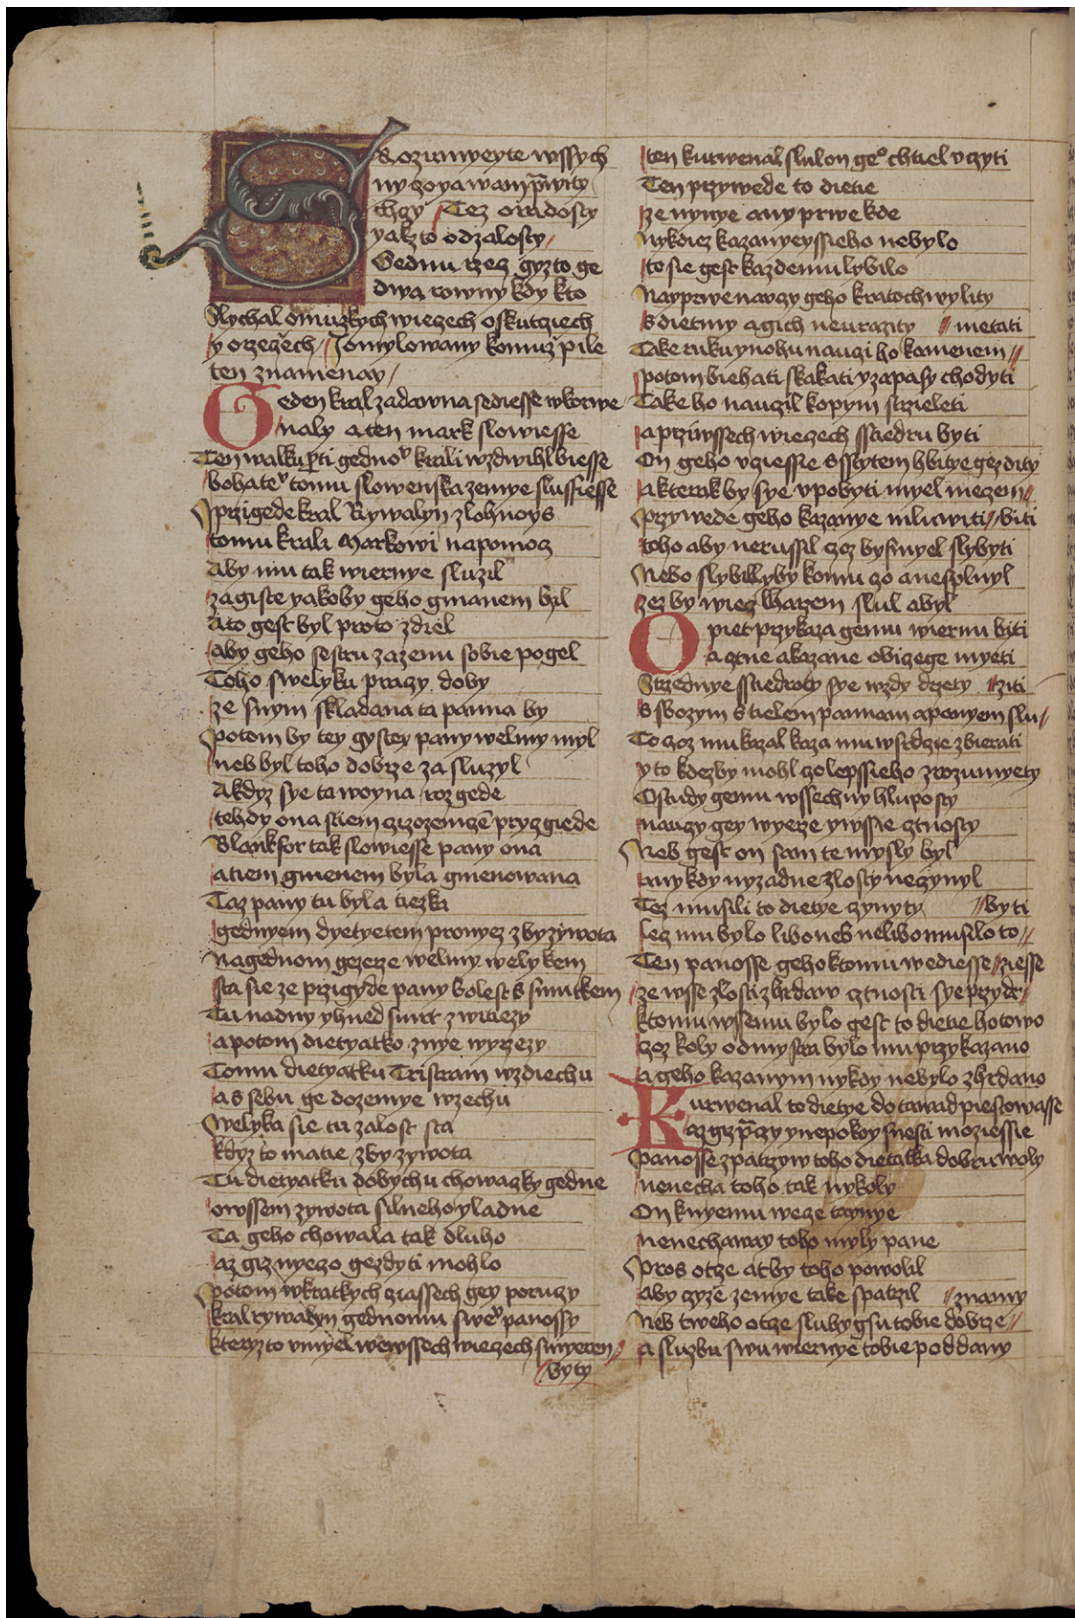 Rozumyeyte wssych
ny czo ya wam prwity
chczy Tez o radosty
yakzto odzalosty
Sednu rzecz gyzto ge
dwa rowny kdy kto
slychal omuzkych wieczech oskutcziech
y orzeczech Jomylowany komuz pile
ten znamenay
Geden kral zadawna sediesse wkorwe
naly aten mark slowiesse
Ten walku proti gednoᵘ krali wzdwihl biesse
bohateᵘ tomu slowenska zemye slussiesse
Przigede kral Rywalyn zlohnoys
tomu krali Markowi napomocz
Aby mu tak wiernye sluzil
zagiste yakoby geho gmanem bil
Ato gest byl proto zdiel
aby geho sestru zazenu sobie pogel
Toho swelyku praczy doby
ze snym skladana ta panna by
potom by tey gystey pany welmy myl
neb byl toho dobrze zasluzyl
Akdyz sye ta woyna rozgede
tehdy ona stiem czizozemcze pryczgiede
Blankflor tak slowiesse pany ona
atiem gmenem byla gmenowana
Taz pany tu byla tiezka
gednyem dyetyetem pronyez zby zywota
nagednom gezerze welmy welykem
sta sie ze przigyde pany bolest s smutkem
Tu nadny yhned smrt zwitiezy
apotom dietyatko znye wyrzezy
Tomu dietyatku Tristram wzdiechu
as sebu ge dozemye wzechu
welyka sie tu zalost sta
kdyz to matie zby zywota
Tu dietyatku dobychu chowaczky gedne
owssem zywota silneho yladne
Ta geho chowala tak dluho
az giz nyeczo gezdyti mohlo
potom wkratkych cziassech gey poruczy
kral rywalyn gednomu sweᵘ panossy
kteryzto umyel wewssech wieczech smyeren
byty
ten kurwenal slul on geᵒ chtiel vczyti
Ten przywede to dietie
ze nynye any prwe kde
nykdiez kazanyeyssieho nebylo
to sie gest kazdemu lybilo
Nayprwe nauczy geho kratochwylity
s dietmy agich neurazity metati
Take ruku ynohu nauczi ho kamenem
potom biehati skakati yzapasy chodyti
Take ho nauczil kopym strzieleti
aprziwssech wieczech sstiedru byti
On geho vcziessie s sstytem hbitye gezdity
akterak by sye vpobyti myel meczem
przywede geho kazanye mluwiti biti
toho aby nerussil czoz by smyel slybyti
Nebo slybillyby komu czo anesplnyl
zez by wiecz lharzem slul abyl
Opiet przykaza gemu wiernu biti
actne akazane obiczege myeti
Strzednye sstiedroty sye wzdy drzety ziti
s sbozym stielem pannam apanyem slu
To czoz mu kazal kaza mu wstdcze zbierati
yto kdezby mohl czo lepssieho zrozumyety
Ostudy gemu wssechny hluposty
nauczy gey wyerze ywssie cztnosty
Neb gest on sam te mysly byl
any kdy nyzadne zlosty neczynyl
Tez musili to dietye czynyty byti
lecz mu bylo libo neb nelibo musilo to
Ten panosse geho ktomu wediesse ziesse
ze wsse zlosti zhrdaw cztnosti sye przydr
ktomu wssemu bylo gest to dietie hotowo
czoz koly od mystra bylo mu przykazano
a geho kazanym nykdy nebylo zhrdano
Kurwenal to dietye do tawad piestowasse
az giz praczy ynepokoy snesti moziessie
panosse zpatrzyw toho dietatka dobru woly
nenecha toho tak nykoly
On knyemu wecze taynye
nenechaway toho myly pane
pros otcze atby toho powolil
aby czyze zemye take spatrzil znamy
Neb tweho otcze sluhy gsu tobie dobrze
a sluzbu swu wiernye tobie poddany